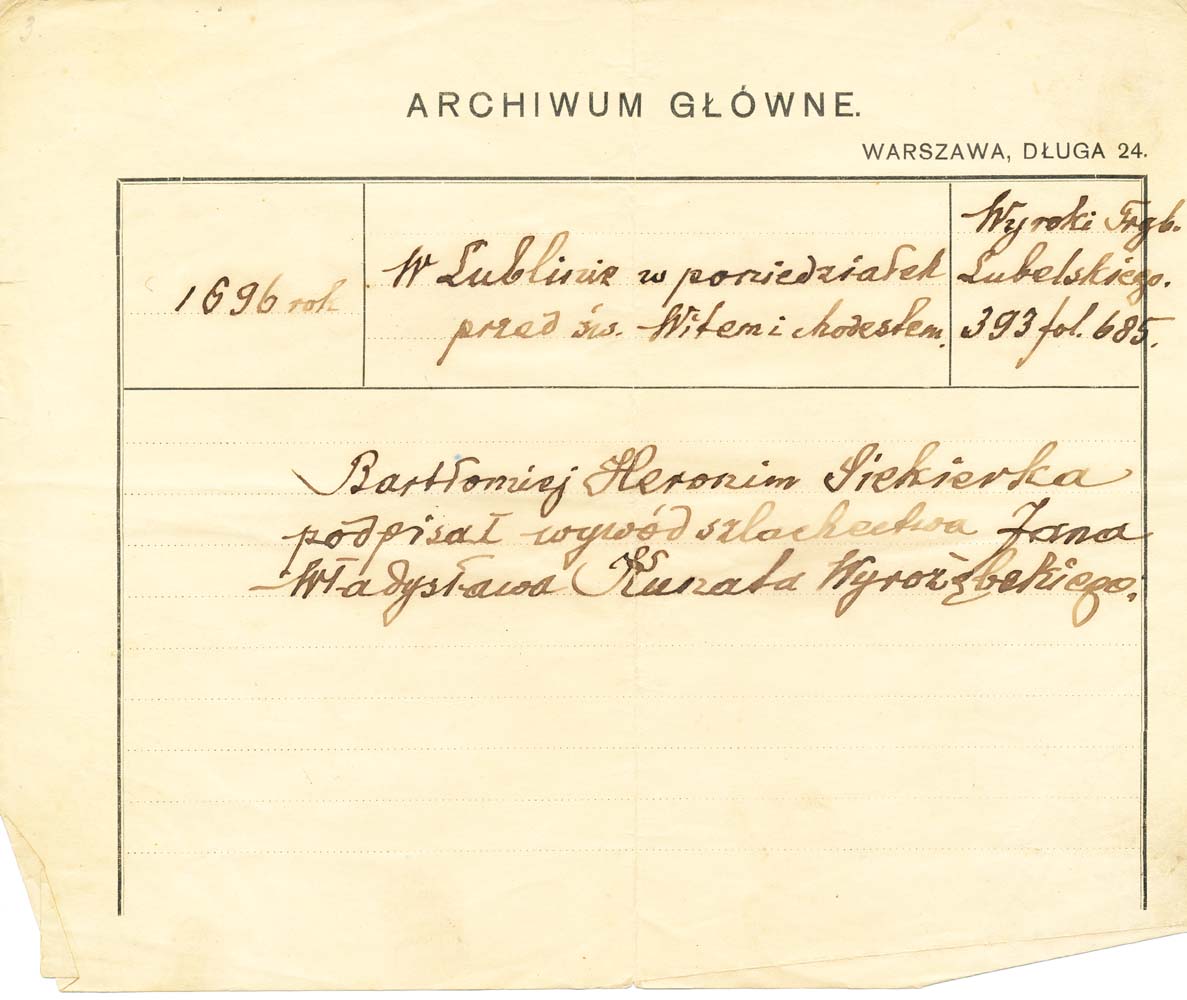 3
ARCHIWUM GŁÓWNE.
WARSZAWA, DŁUGA 24.
1696 rok
W Lublinie w poniedziałek
przed św. Witem i Modestem.
Wyroki Tryb.
Lubelskiego.
393 fol. 685.
Bartłomiej Heronim Siekierka
podpisał wywód szlachectwa Jana
Władysława Kunata Wyrozębskiego.